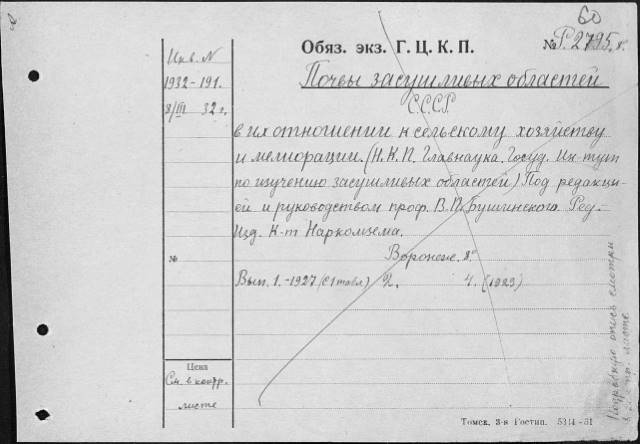 60
Обяз. экз. Г.Ц.К.П.
№ Р.2795.8°
Инв. N
1932-191.
8/III 32 г.
Почвы засушливых областей
С.С.С.Р.
в их отношении к сельскому хозяйству
и мелиорации. (Н.К.П. Главнаука. Госуд. Ин-тут
по изучению засушливых областей) Под редакци-
ей и руководством проф. В.П. Бушинского Ред-
Изд. К-т Наркомзема.
Воронеж. 8°
№
Вып. 1.-1927 (С 1 табл) 2. 4. (1929)
Цена
См. в контр.
листе
опись смотри
листе
Томск, 3-я Гостип. 5344-31